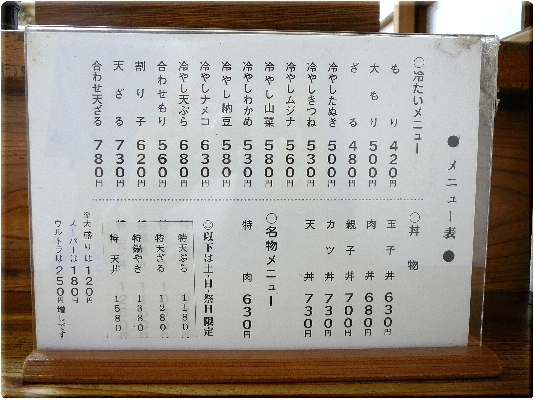 ● メニュー表 ●
○冷たいメニュー
もり 420円
大もり 500円
ざる 480円
冷やしたぬき 500円
冷やしきつね 530円
冷やしムジナ 560円
冷やし山菜 580円
冷やしわかめ 530円
冷やし納豆 580円
冷やしナメコ 630円
冷やし天ぷら 680円
合わせもり 560円
割り子 620円
天ざる 730円
合わせ天ざる 780円
○丼物
玉子丼 630円
肉丼 680円
親子丼 700円
カツ丼 730円
天丼 730円
○名物メニュー
特肉 630円
◎以下は土・日・祭日限定
特天ぷら 1180円
特天ざる 1280円
特鍋やき 1380円
特天丼 1580円
大盛りは120円
スーパーは180円
ウルトラは250円増しです